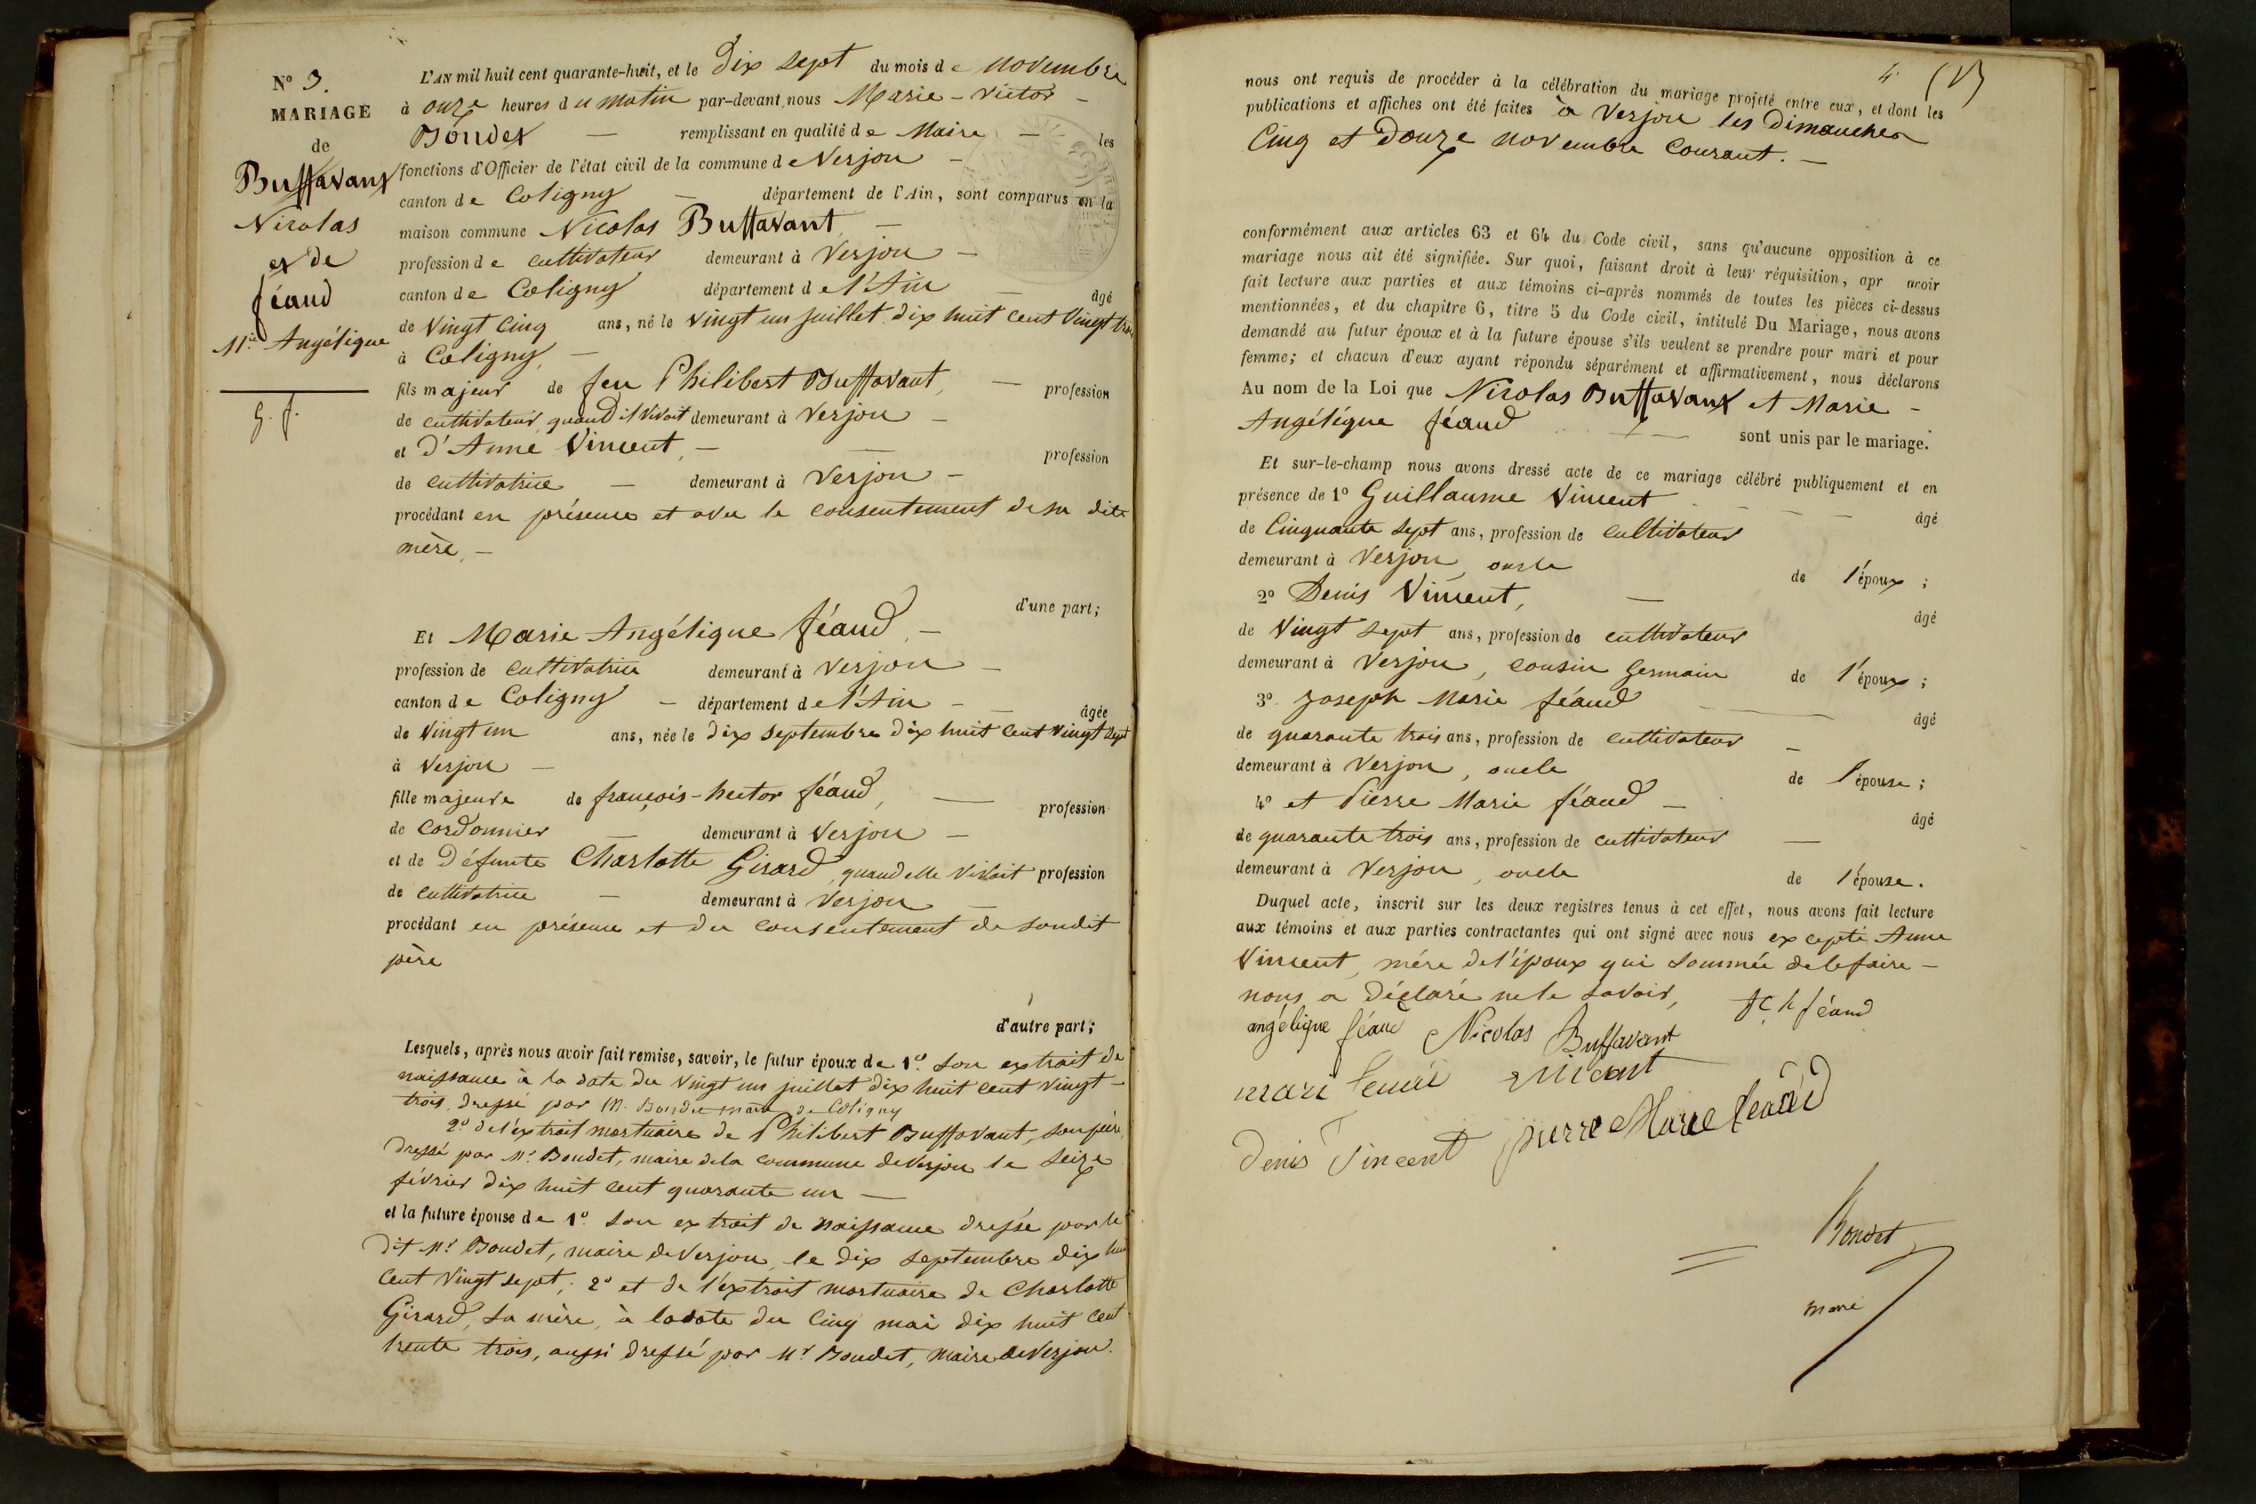 N.º 3.
MARIAGE
de
Buffavant
Nicolas
et de
féaud
M.ie Angélique
g. f.
L'AN mil huit cent quarante-huit, et le Dix sept du mois de novembre
à onze heures du matin par-devant nous Marie-Victor -
Boudet — remplissant en qualité de Maire — les
fonctions d'Officier de l'état civil de la commune de Verjon -
canton de Coligny — département de l'Ain, sont comparus en la
maison commune Nicolas Buffavant, —
profession de cultivateur demeurant à Verjon -
canton de Coligny département de l'Ain — âgé
de Vingt cinq ans, né le vingt un juillet dix huit cent vingt trois
à Coligny, —
fils majeur de feu Philibert Buffavant, — profession
de cultivateur, quand il vivait demeurant à Verjon —
et d'Anne Vincent, — profession
de cultivatrice — demeurant à Verjon -
procédant en présence et avec le consentement de sa dite
mère, —
d'une part;
Et Marie Angélique féaud, —
profession de cultivatrice demeurant à Verjon —
canton de Coligny - département de l'Ain - — âgée
de vingt un ans, née le dix septembre dix huit cent vingt sept
à Verjon —
fille majeure de françois-hector féaud, — profession
de cordonnier — demeurant à Verjon —
et de Défunte Charlotte Girard, quand elle vivait profession
de cultivatrice — demeurant à Verjon —
procédant en présence et du consentement de sondit
père
d'autre part;
Lesquels, après nous avoir fait remise, savoir, le futur époux de 1º. son extrait de
naissance à la date du vingt un juillet dix huit cent vingt-
trois dressé par M. maire de Coligny
2º de l'extrait mortuaire de Philibert Buffavant, son père,
dressé par Mr. Boudet, maire de la commune de Verjon le seize
février dix huit cent quarante un —
et la future épouse de 1º. son extrait de naissance dressé par le
dit Mr Boudet, maire de Verjon, le dix septembre dix huit
cent vingt sept; 2º et de l'extrait mortuaire de Charlotte
Girard, sa mère, à la date du cinq mai dix huit cent
trente trois, aussi dressé par Mr Boudet, maire de Verjon.
4.
nous ont requis de procéder à la célébration du mariage projeté entre eux, et dont les
publications et affiches ont été faites à Verjon les Dimanches
Cinq et Douze novembre courant. —
conformément aux articles 63 et 64 du Code civil, sans qu'aucune opposition à ce
mariage nous ait été signifiée. Sur quoi, faisant droit à leur réquisition, apr avoir
fait lecture aux parties et aux témoins ci-après nommés de toutes les pièces ci-dessus
mentionnées, et du chapitre 6, titre 5 du Code civil, intitulé Du Mariage, nous avons
demandé au futur époux et à la future épouse s'ils veulent se prendre pour mari et pour
femme; et chacun d'eux ayant répondu séparément et affirmativement, nous déclarons
Au nom de la Loi que Nicolas Buffavant et Marie -
Angélique féaud — sont unis par le mariage.
Et sur-le-champ nous avons dressé acte de ce mariage célébré publiquement et en
présence de 1º Guillaume Vincent — âgé
de Cinquante sept ans, profession de cultivateur
demeurant à Verjon, oncle de l'époux;
2º Denis Vincent, — âgé
de Vingt sept ans, profession de cultivateur
demeurant à Verjon, cousin germain de l'époux;
3º. Joseph Marie féaud — âgé
de quarante trois ans, profession de cultivateur —
demeurant à Verjon, oncle de l'épouse;
4º et Pierre Marie féaud — âgé
de quarante trois ans, profession de cultivateur —
demeurant à Verjon, oncle de l'épouse.
Duquel acte, inscrit sur les deux registres tenus à cet effet, nous avons fait lecture
aux témoins et aux parties contractantes qui ont signé avec nous excepté Anne
Vincent, mère de l'époux qui sommée de le faire —
nous a déclaré ne le savoir,
fc h féaud
angélique féaud Nicolas Buffavant
Denis Vincent pierre Marie feaud
Boudet
maire